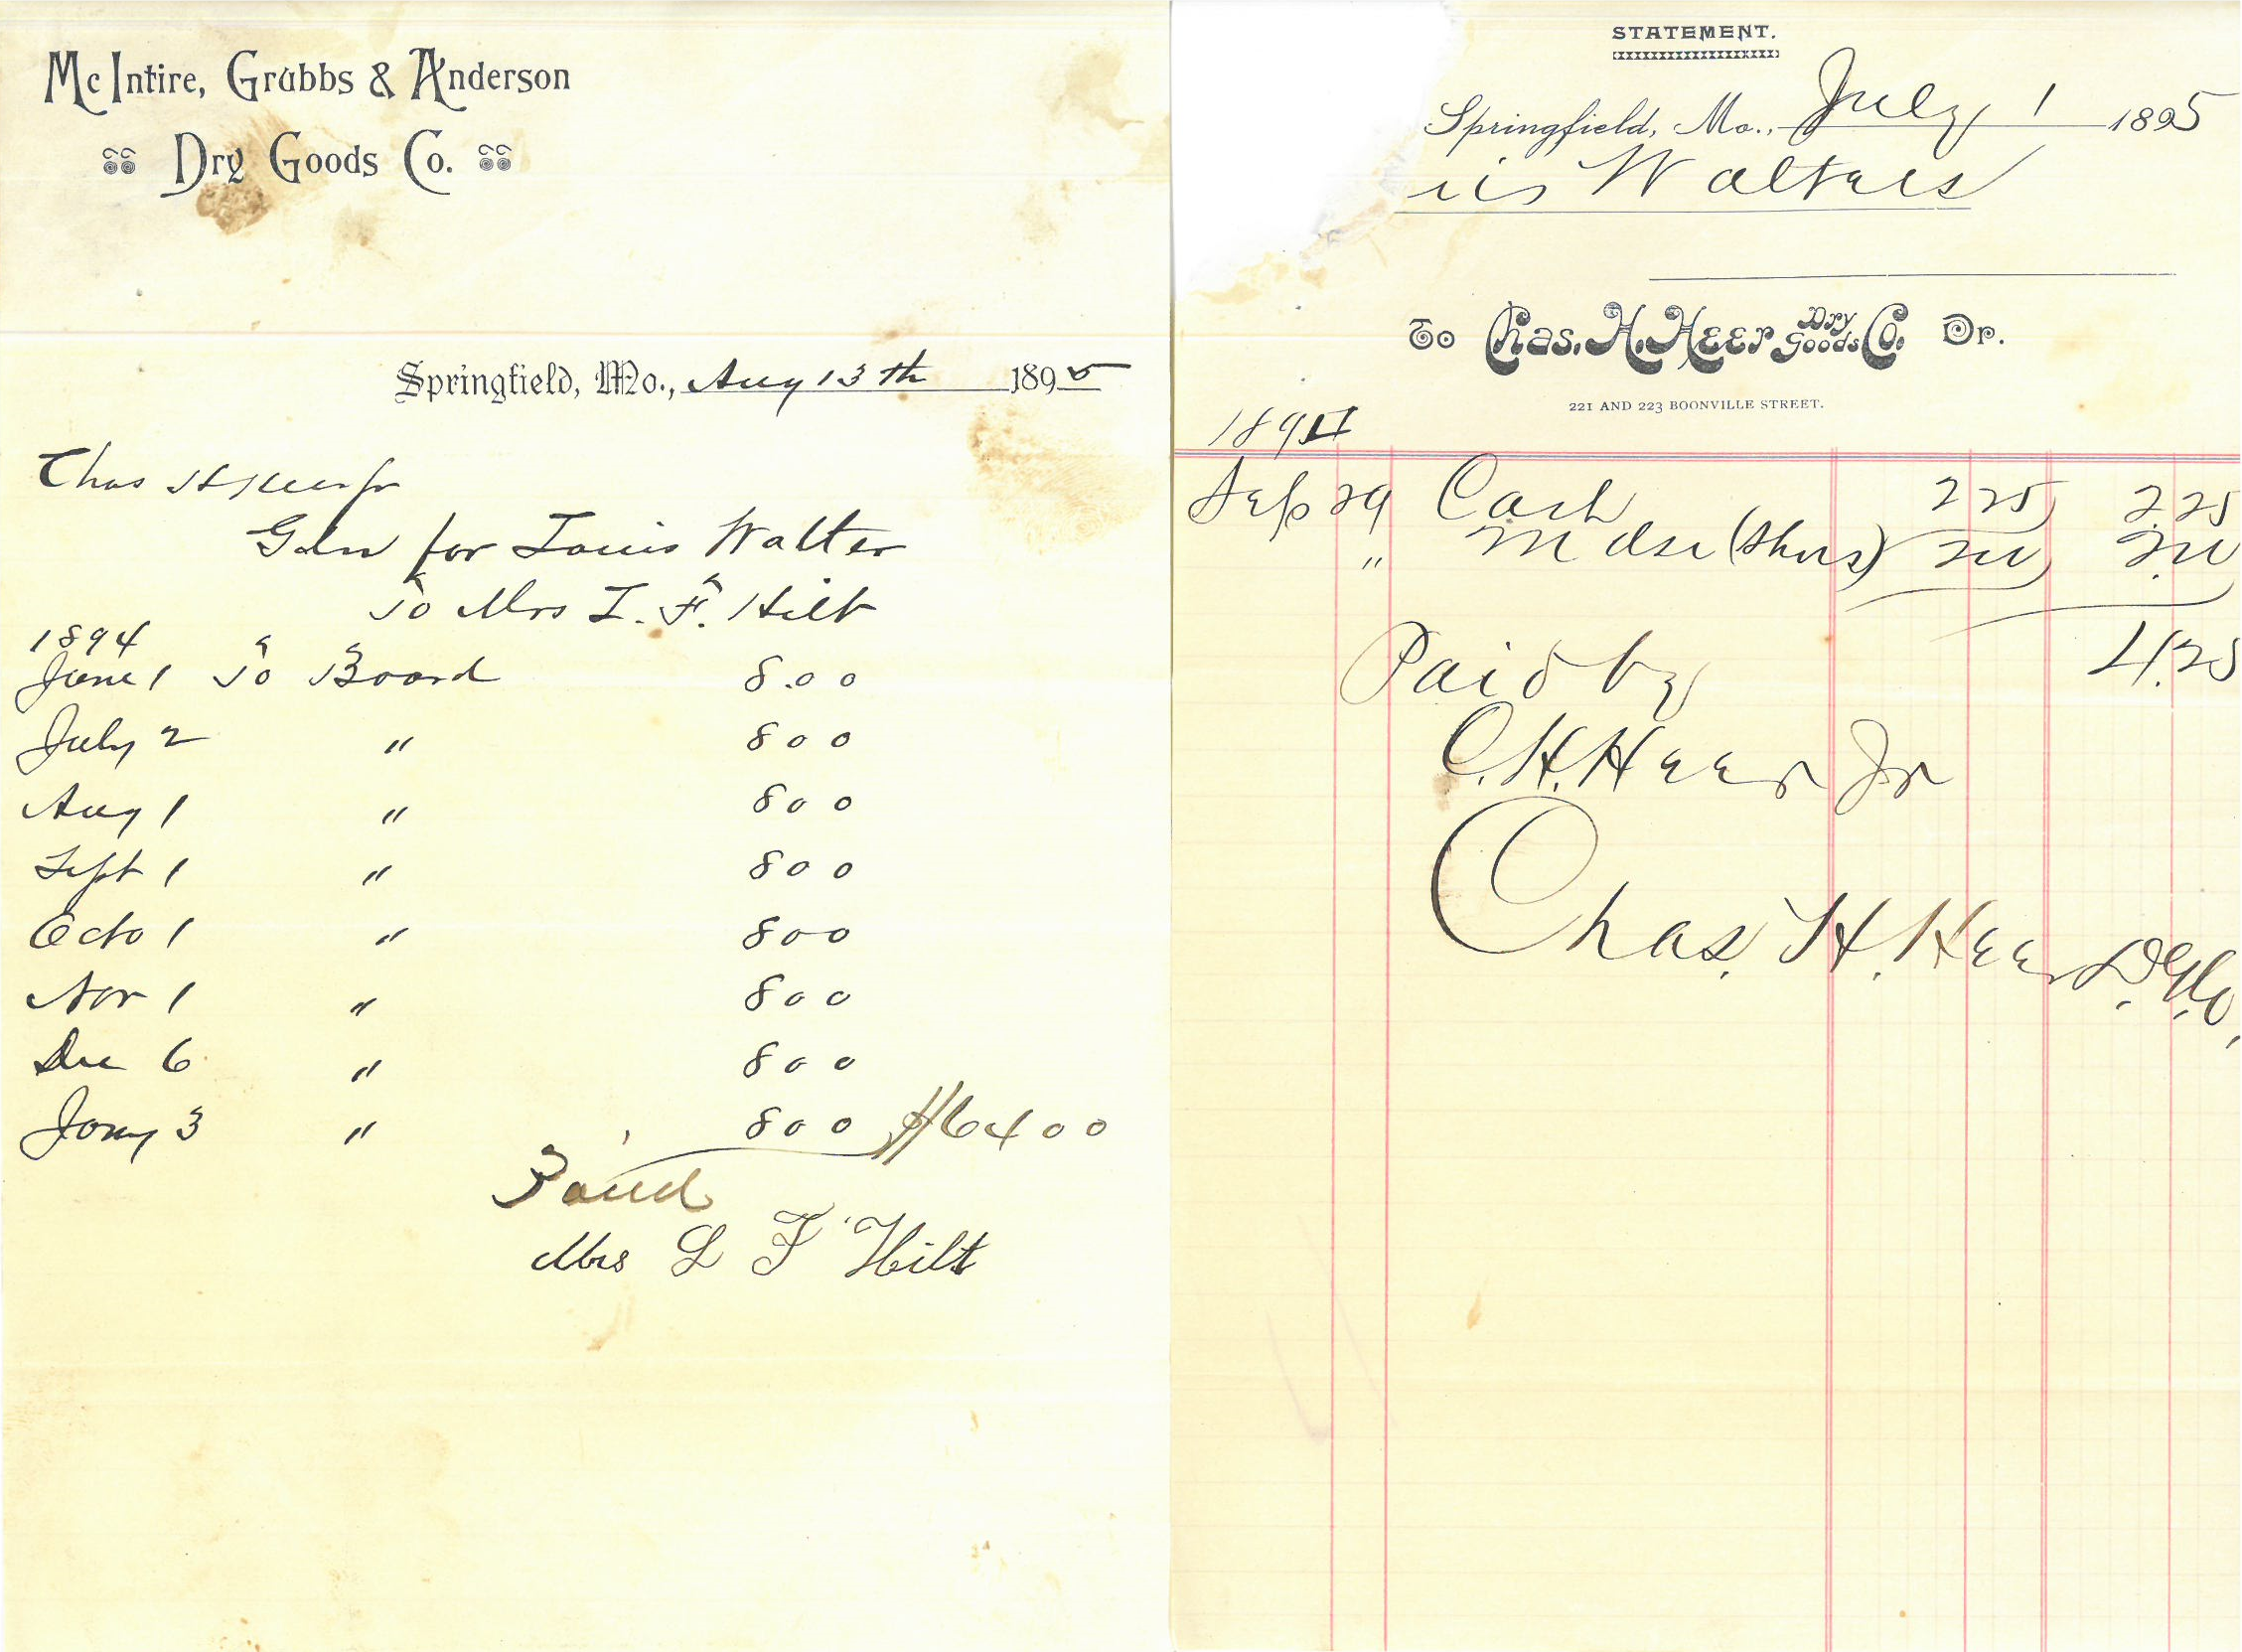 Mc Intire, Grubbs & Anderson
Dry Goods Co.
Springfield, Mo., Aug 13th 1895
Chas H Heer Jr
Gdn for Louis Walter
To Mrs L. F. Hilt
1894
June 1 To Board 8.00
July 2 " 800
Aug 1 " 800
Sept 1 " 800
Octo 1 " 800
Nov 1 " 800
Dec 6 " 800
Jany 3 " 800 $6400
Paid
Mrs L F Hilt
STATEMENT.
Springfield, Mo., July 1 1895
is Walters
To Chas. H. Heer Dry Goods Co. Dr.
221 AND 223 BOONVILLE STREET.
1894
Sep 29 Cash 225 2.25
" Mdse (Shoes) 200 2.00
4.25
Paid by
C. H. Heer Jr
Chas. H. Heer D. G. Co.